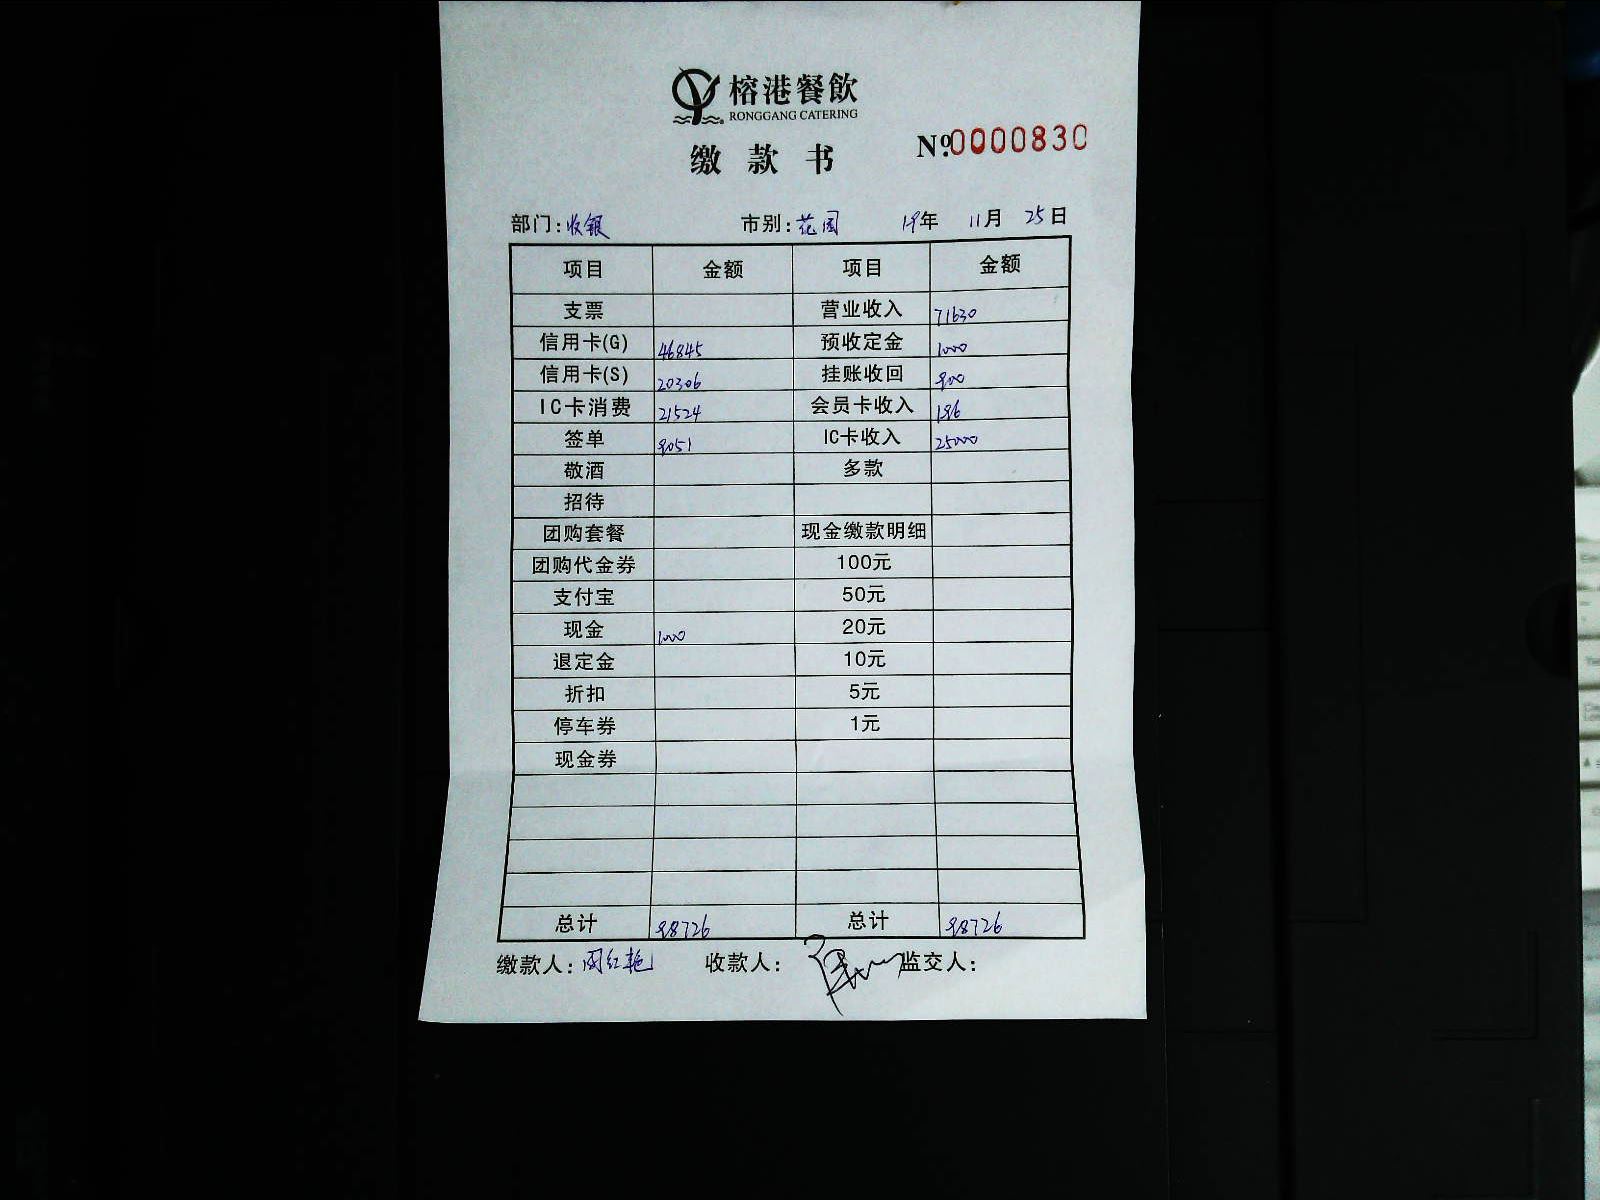 榕港餐飲
RONGGANG CATERING
缴款书 Nº.0000830
部门:收银 市别:花园 19年 11月 25日
项目 金额 项目 金额
支票 营业收入 71630
信用卡(G) 46845 预收定金 1000
信用卡(S) 20306 挂账收回 900
IC卡消费 21524 会员卡收入 196
签单 9051 IC卡收入 25000
敬酒 多款
招待
团购套餐 现金缴款明细
团购代金券 100元
支付宝 50元
现金 1000 20元
退定金 10元
折扣 5元
停车券 1元
现金券
总计 98726 总计 98726
缴款人:红艳 收款人: 监交人: